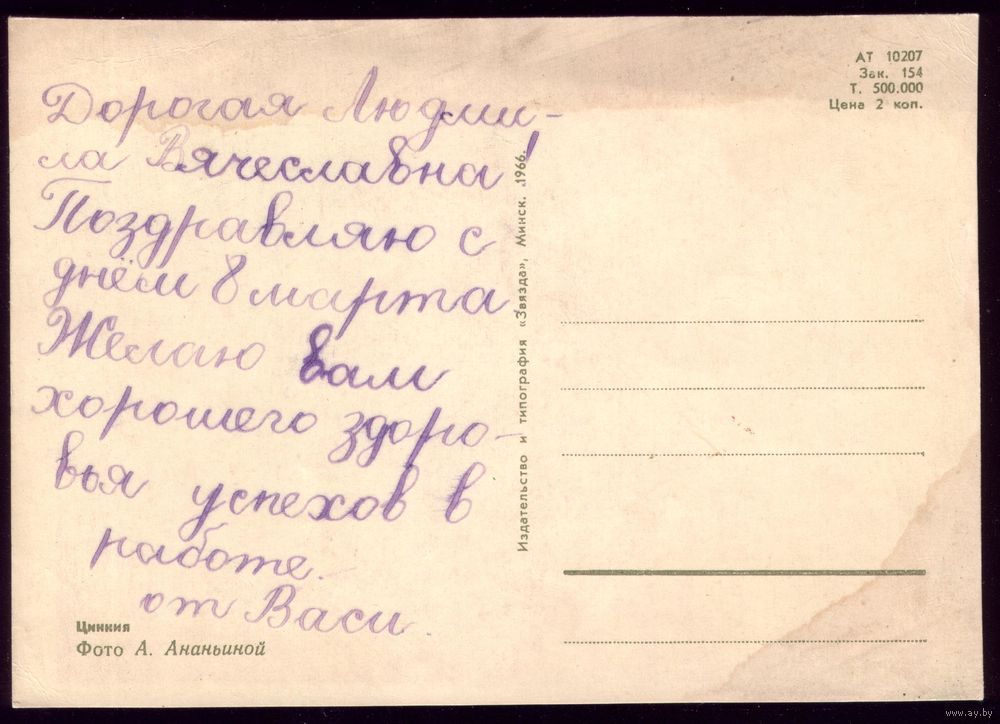 Дорогая Людми-
ла Вячеславна!
Поздравляю с
днём 8 марта
Желаю вам
хорошего здоро-
вья успехов в
работе.
от Васи.
Цинния
Фото А. Ананьиной
Издательство и типография «Звязда», Минск. 1966.
АТ 10207
Зак. 154
Т. 500.000
Цена 2 коп.
www.ay.by